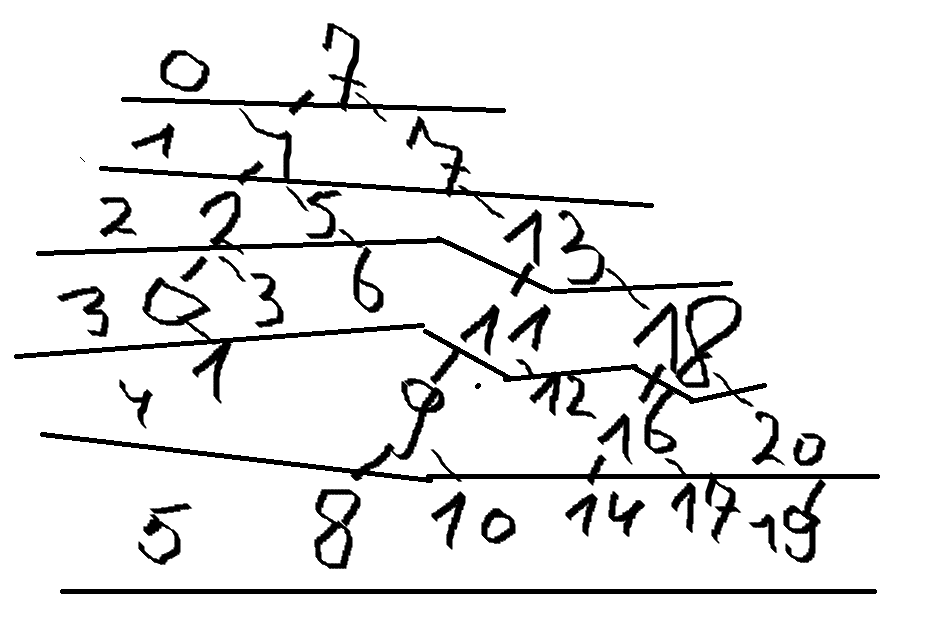 0 7
1 4 17
2 2 5 13
3 0 3 6 11 18
4 1 9 12 16 20
5 8 10 14 17 19